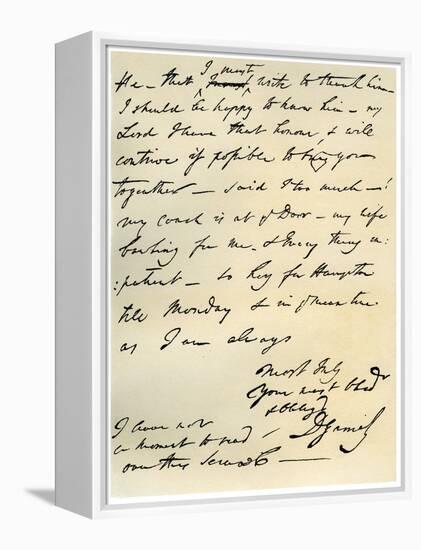 He – that I must write to thank him –
I should be happy to know him – my
Lord I have that honour, & will
contrive if possible to bring you
together – said I too much – !
my coach is at yᵉ Door – my wife
bawling for me, & Every thing im
:patient – so Hey for Hampton
till Monday & in yᵉ mean time
as I am always
most truly
Your most Obdᵗ
& obligd
D Garrick
I have not
a moment to read
over this Scrawl –